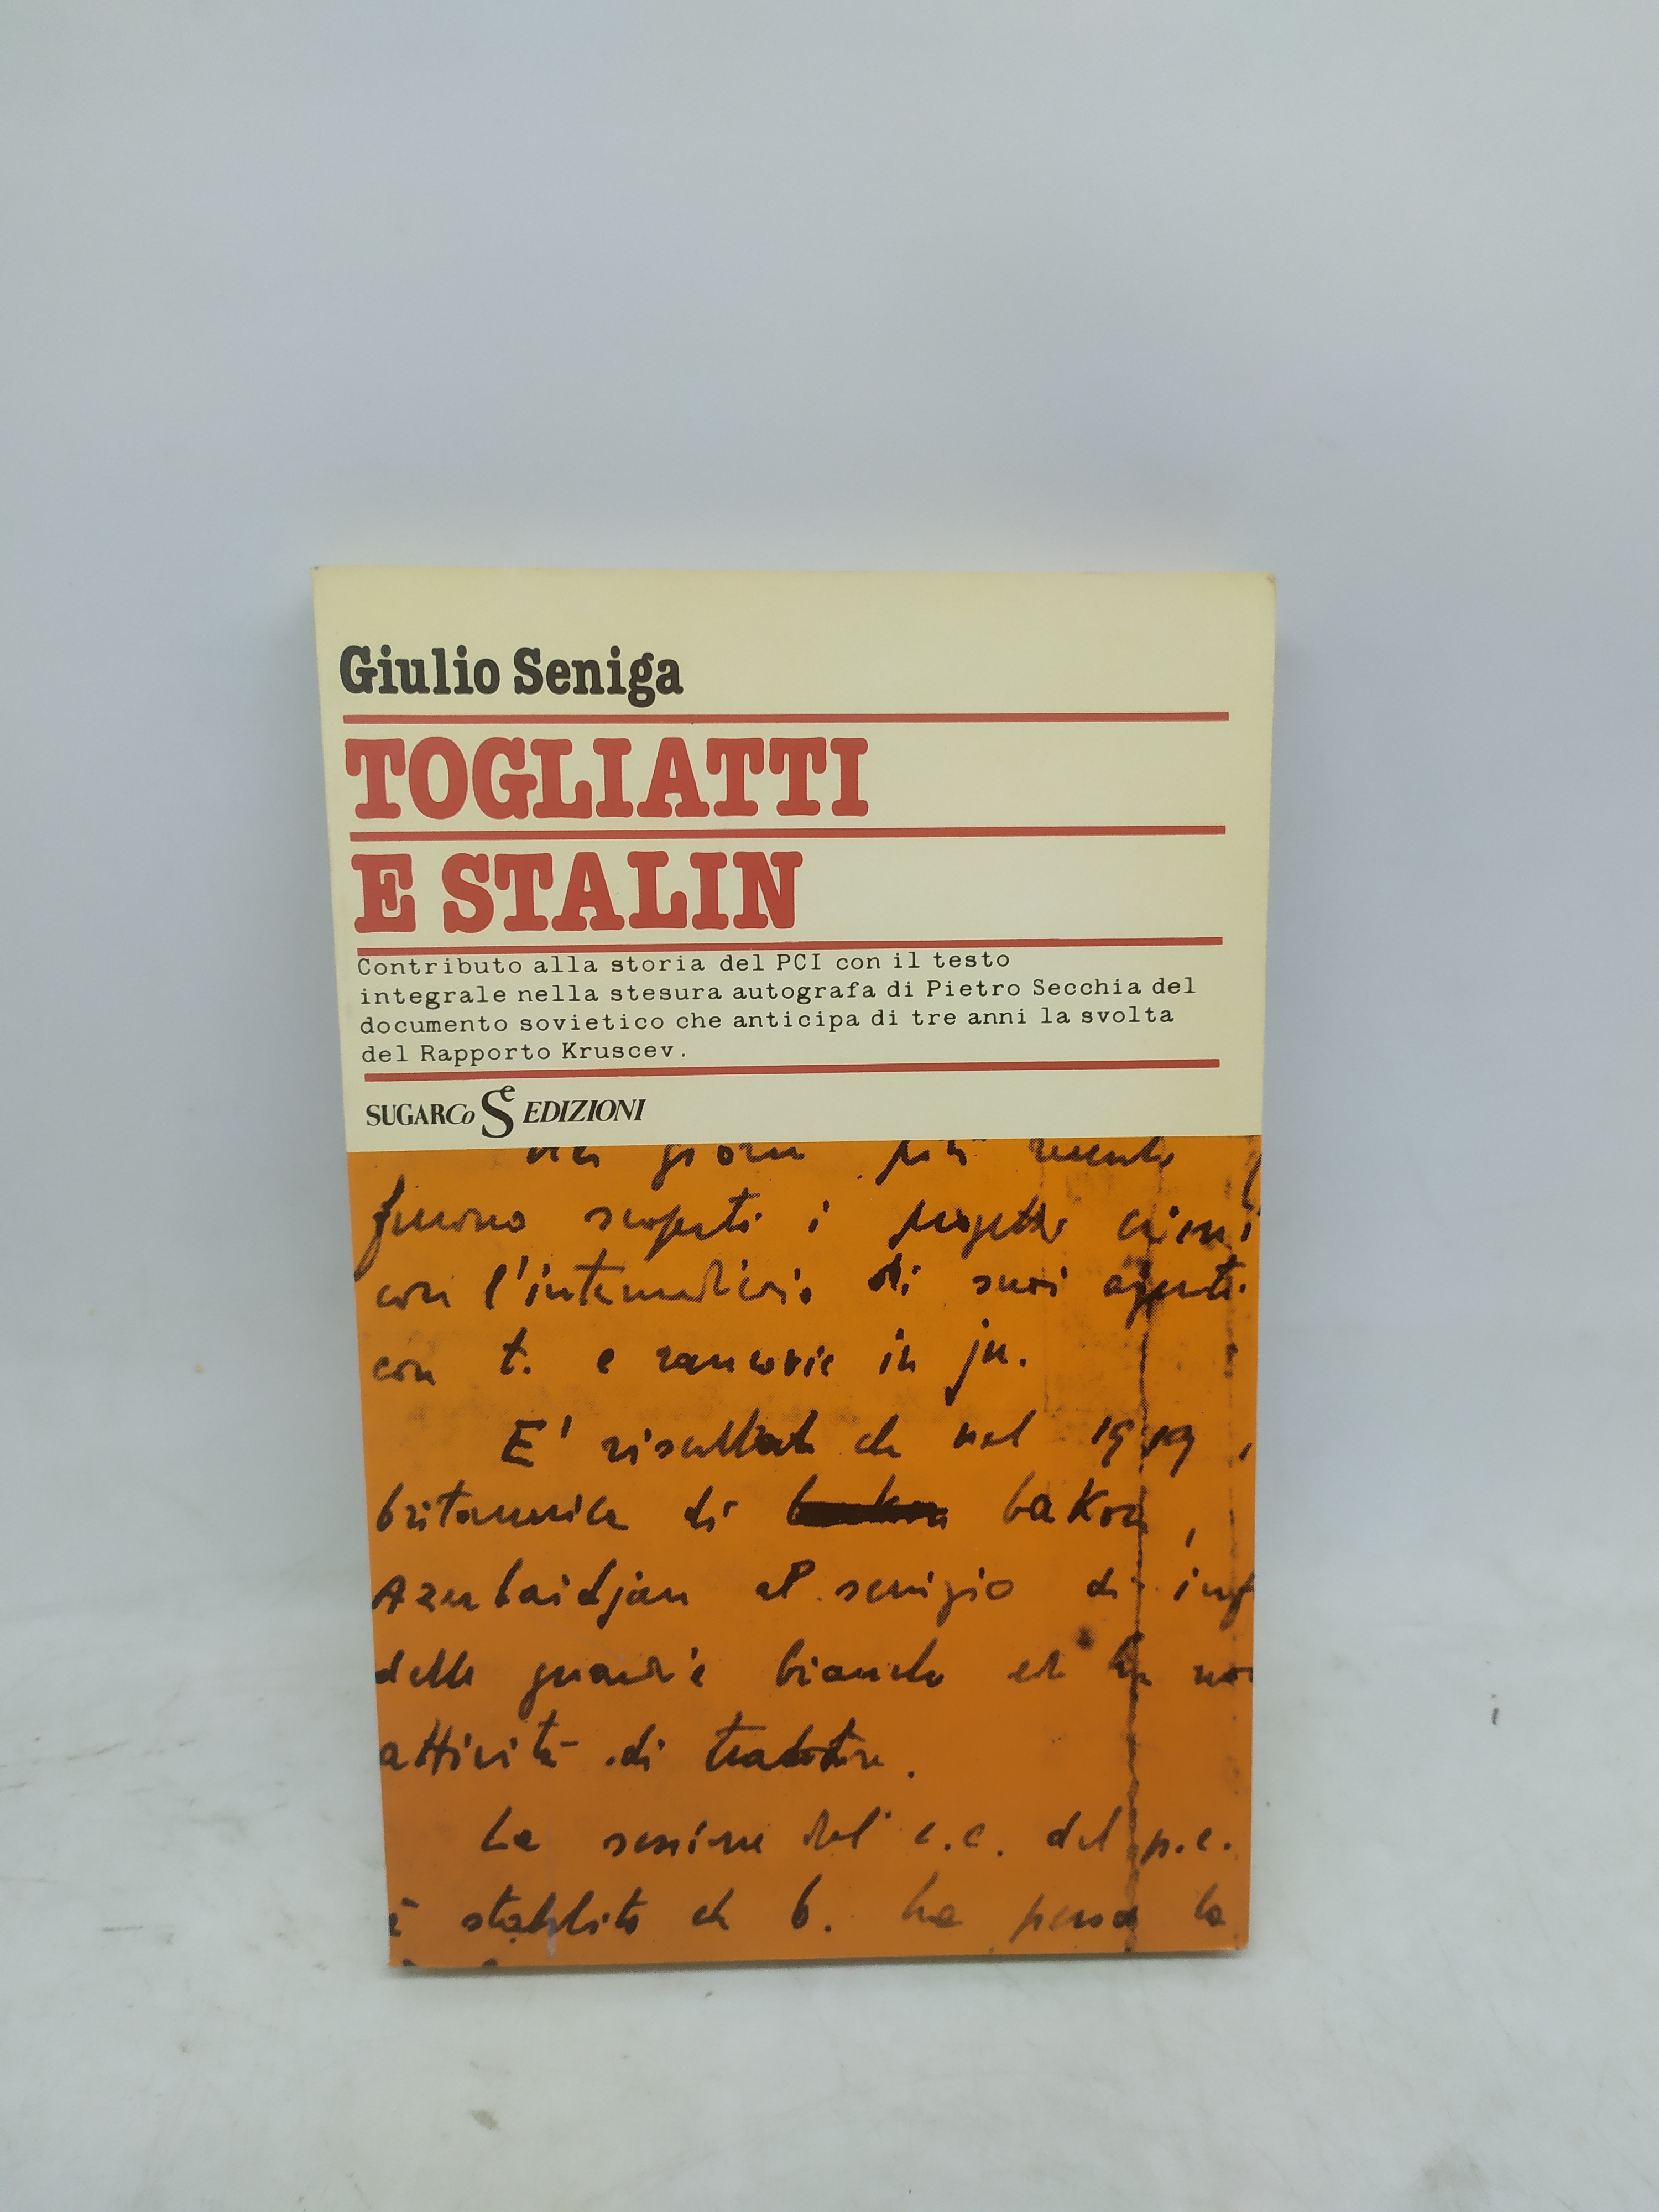 Giulio Seniga
TOGLIATTI
E STALIN
Contributo alla storia del PCI con il testo
integrale nella stesura autografa di Pietro Secchia del
documento sovietico che anticipa di tre anni la svolta
del Rapporto Kruscev.
SUGARCo Se EDIZIONI
furono scoperti i progetti
con l'intermediario di suoi agenti
con t. e rancovic in ju.
E' risultato che nel 1919,
britannica di bakou,
Azerbaidjan al servizio di
delle guardie bianche ed ha
attività di traditore.
La sessione del c.c. del p.c.
è stabilito che b. ha perso la